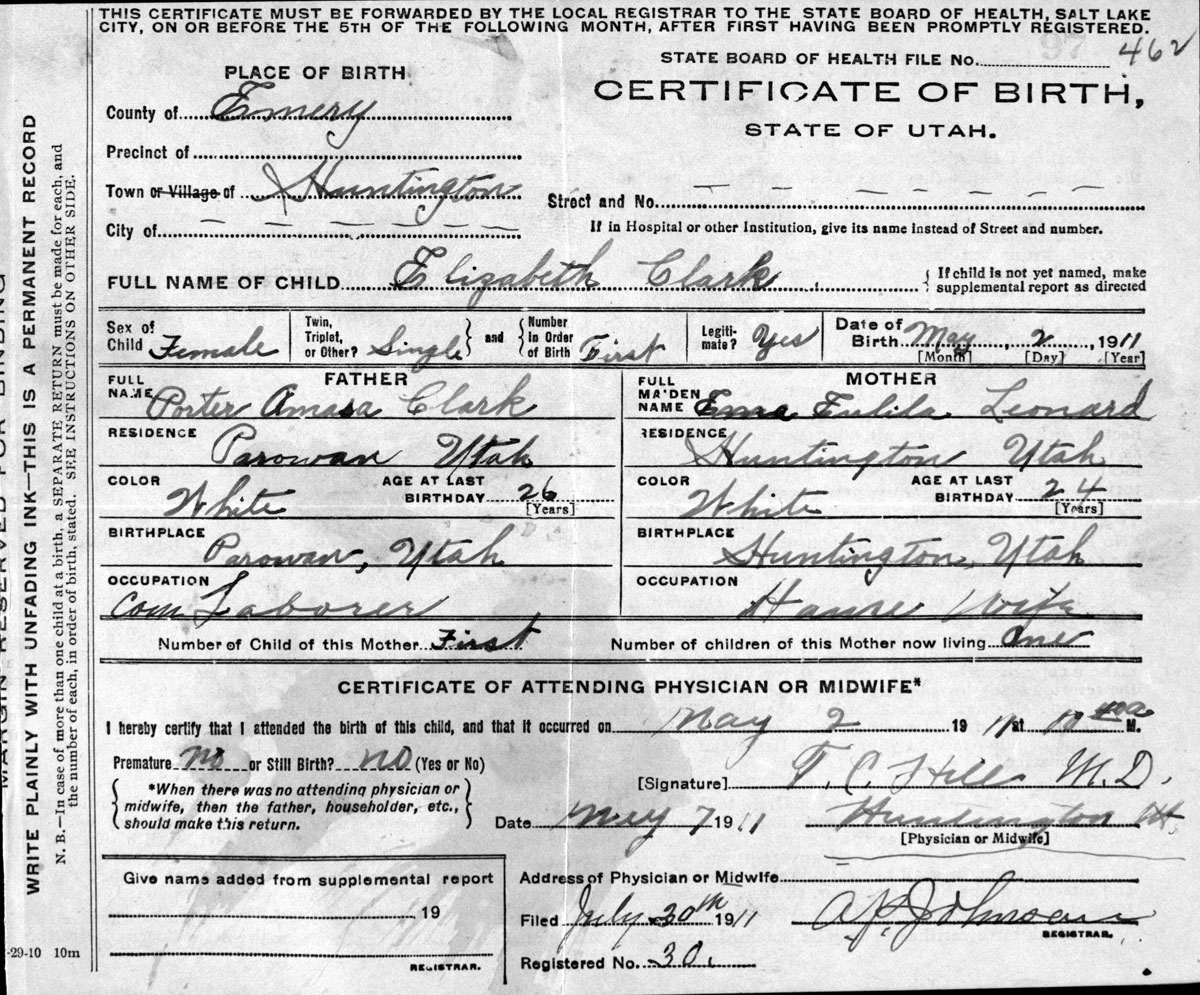 THIS CERTIFICATE MUST BE FORWARDED BY THE LOCAL REGISTRAR TO THE STATE BOARD OF HEALTH, SALT LAKE
CITY, ON OR BEFORE THE 5TH OF THE FOLLOWING MONTH, AFTER FIRST HAVING BEEN PROMPTLY REGISTERED.
97
STATE BOARD OF HEALTH FILE No. 462
CERTIFICATE OF BIRTH,
STATE OF UTAH.
PLACE OF BIRTH
County of Emery
Precinct of
Town or Village of Huntington
City of
Street and No.
If in Hospital or other Institution, give its name instead of Street and number.
FULL NAME OF CHILD Elizabeth Clark
If child is not yet named, make
supplemental report as directed
Sex of
Child Female
Twin,
Triplet,
or Other? Single
and
Number
in Order
of Birth First
Legiti-
mate? Yes
Date of
Birth May 2, 1911
[Month] [Day] [Year]
FATHER
FULL
NAME Porter Amasa Clark
RESIDENCE
Parowan Utah
COLOR
White
AGE AT LAST
BIRTHDAY 26
[Years]
BIRTHPLACE
Parowan, Utah
OCCUPATION
Com Laborer
MOTHER
FULL
MAIDEN
NAME Ema Eulila Leonard
RESIDENCE
Huntington Utah
COLOR
White
AGE AT LAST
BIRTHDAY 24
[Years]
BIRTHPLACE
Huntington, Utah
OCCUPATION
House Wife
Number of Child of this Mother First
Number of children of this Mother now living One
CERTIFICATE OF ATTENDING PHYSICIAN OR MIDWIFE*
I hereby certify that I attended the birth of this child, and that it occurred on May 2 1911 at 10 M.
Premature no or Still Birth? no (Yes or No)
*When there was no attending physician or
midwife, then the father, householder, etc.,
should make this return.
[Signature] T. C. Hill M.D.
Date May 7 1911 Huntington Ut.
[Physician or Midwife]
Give name added from supplemental report
19
REGISTRAR.
Address of Physician or Midwife
Filed July 30th 1911 A. P. Johnson
REGISTRAR.
Registered No. 30.
MARGIN RESERVED FOR BINDING
WRITE PLAINLY WITH UNFADING INK—THIS IS A PERMANENT RECORD
N. B.—In case of more than one child at a birth, a SEPARATE RETURN must be made for each, and
the number of each, in order of birth, stated. SEE INSTRUCTIONS ON OTHER SIDE.
-29-10 10m